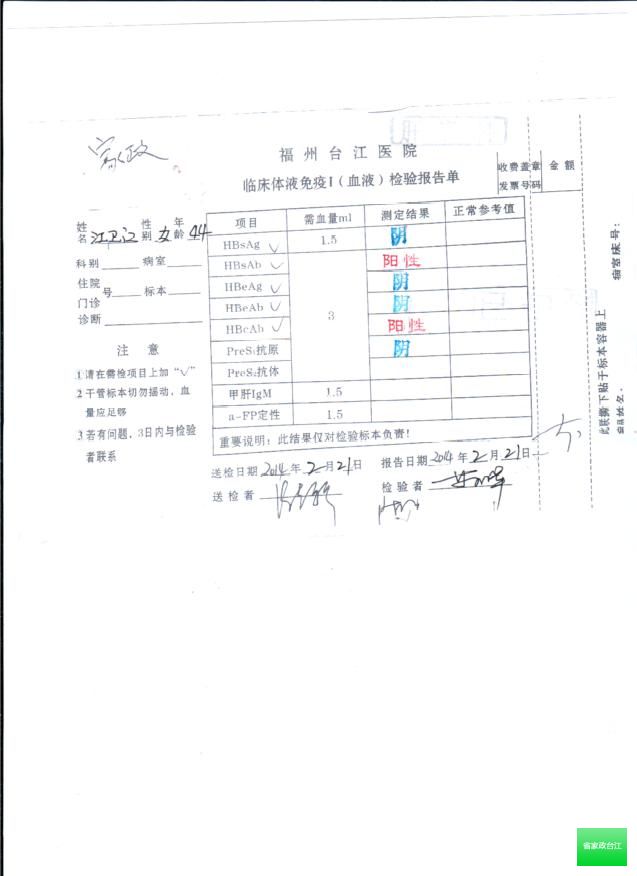 家政
福州台江医院
临床体液免疫I(血液)检验报告单
收费盖章 金额
发票号码
姓名 江卫江 性别 女 年龄 44
科别 病室
住院号 标本
门诊
诊断
注 意
1 请在需检项目上加“√”
2 干管标本切勿摇动，血
量应足够
3 若有问题，3日内与检验
者联系
项目 需血量ml 测定结果 正常参考值
HBsAg √ 1.5 阴
HBsAb √ 阳性
HBeAg √ 3 阴
HBeAb √ 阴
HBcAb √ 阳性
PreS₁抗原 阴
PreS₂抗体
甲肝IgM 1.5
a-FP定性 1.5
重要说明：此结果仅对检验标本负责！
送检日期 2014 年 2 月 21 日 报告日期 2014 年 2 月 21 日
送检者 检验者
此联撕下贴于标本容器上
病室床号：
省家政台江